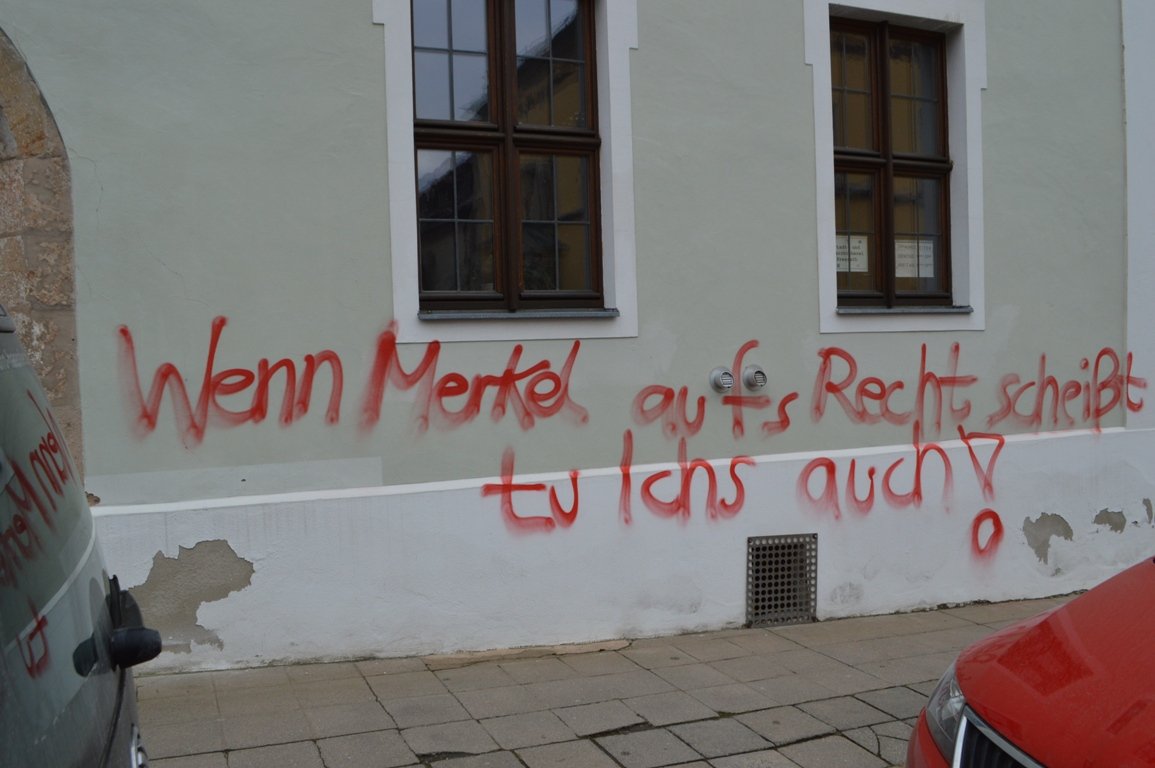 Wenn Merkel aufs Recht scheißt
tu Ichs auch!